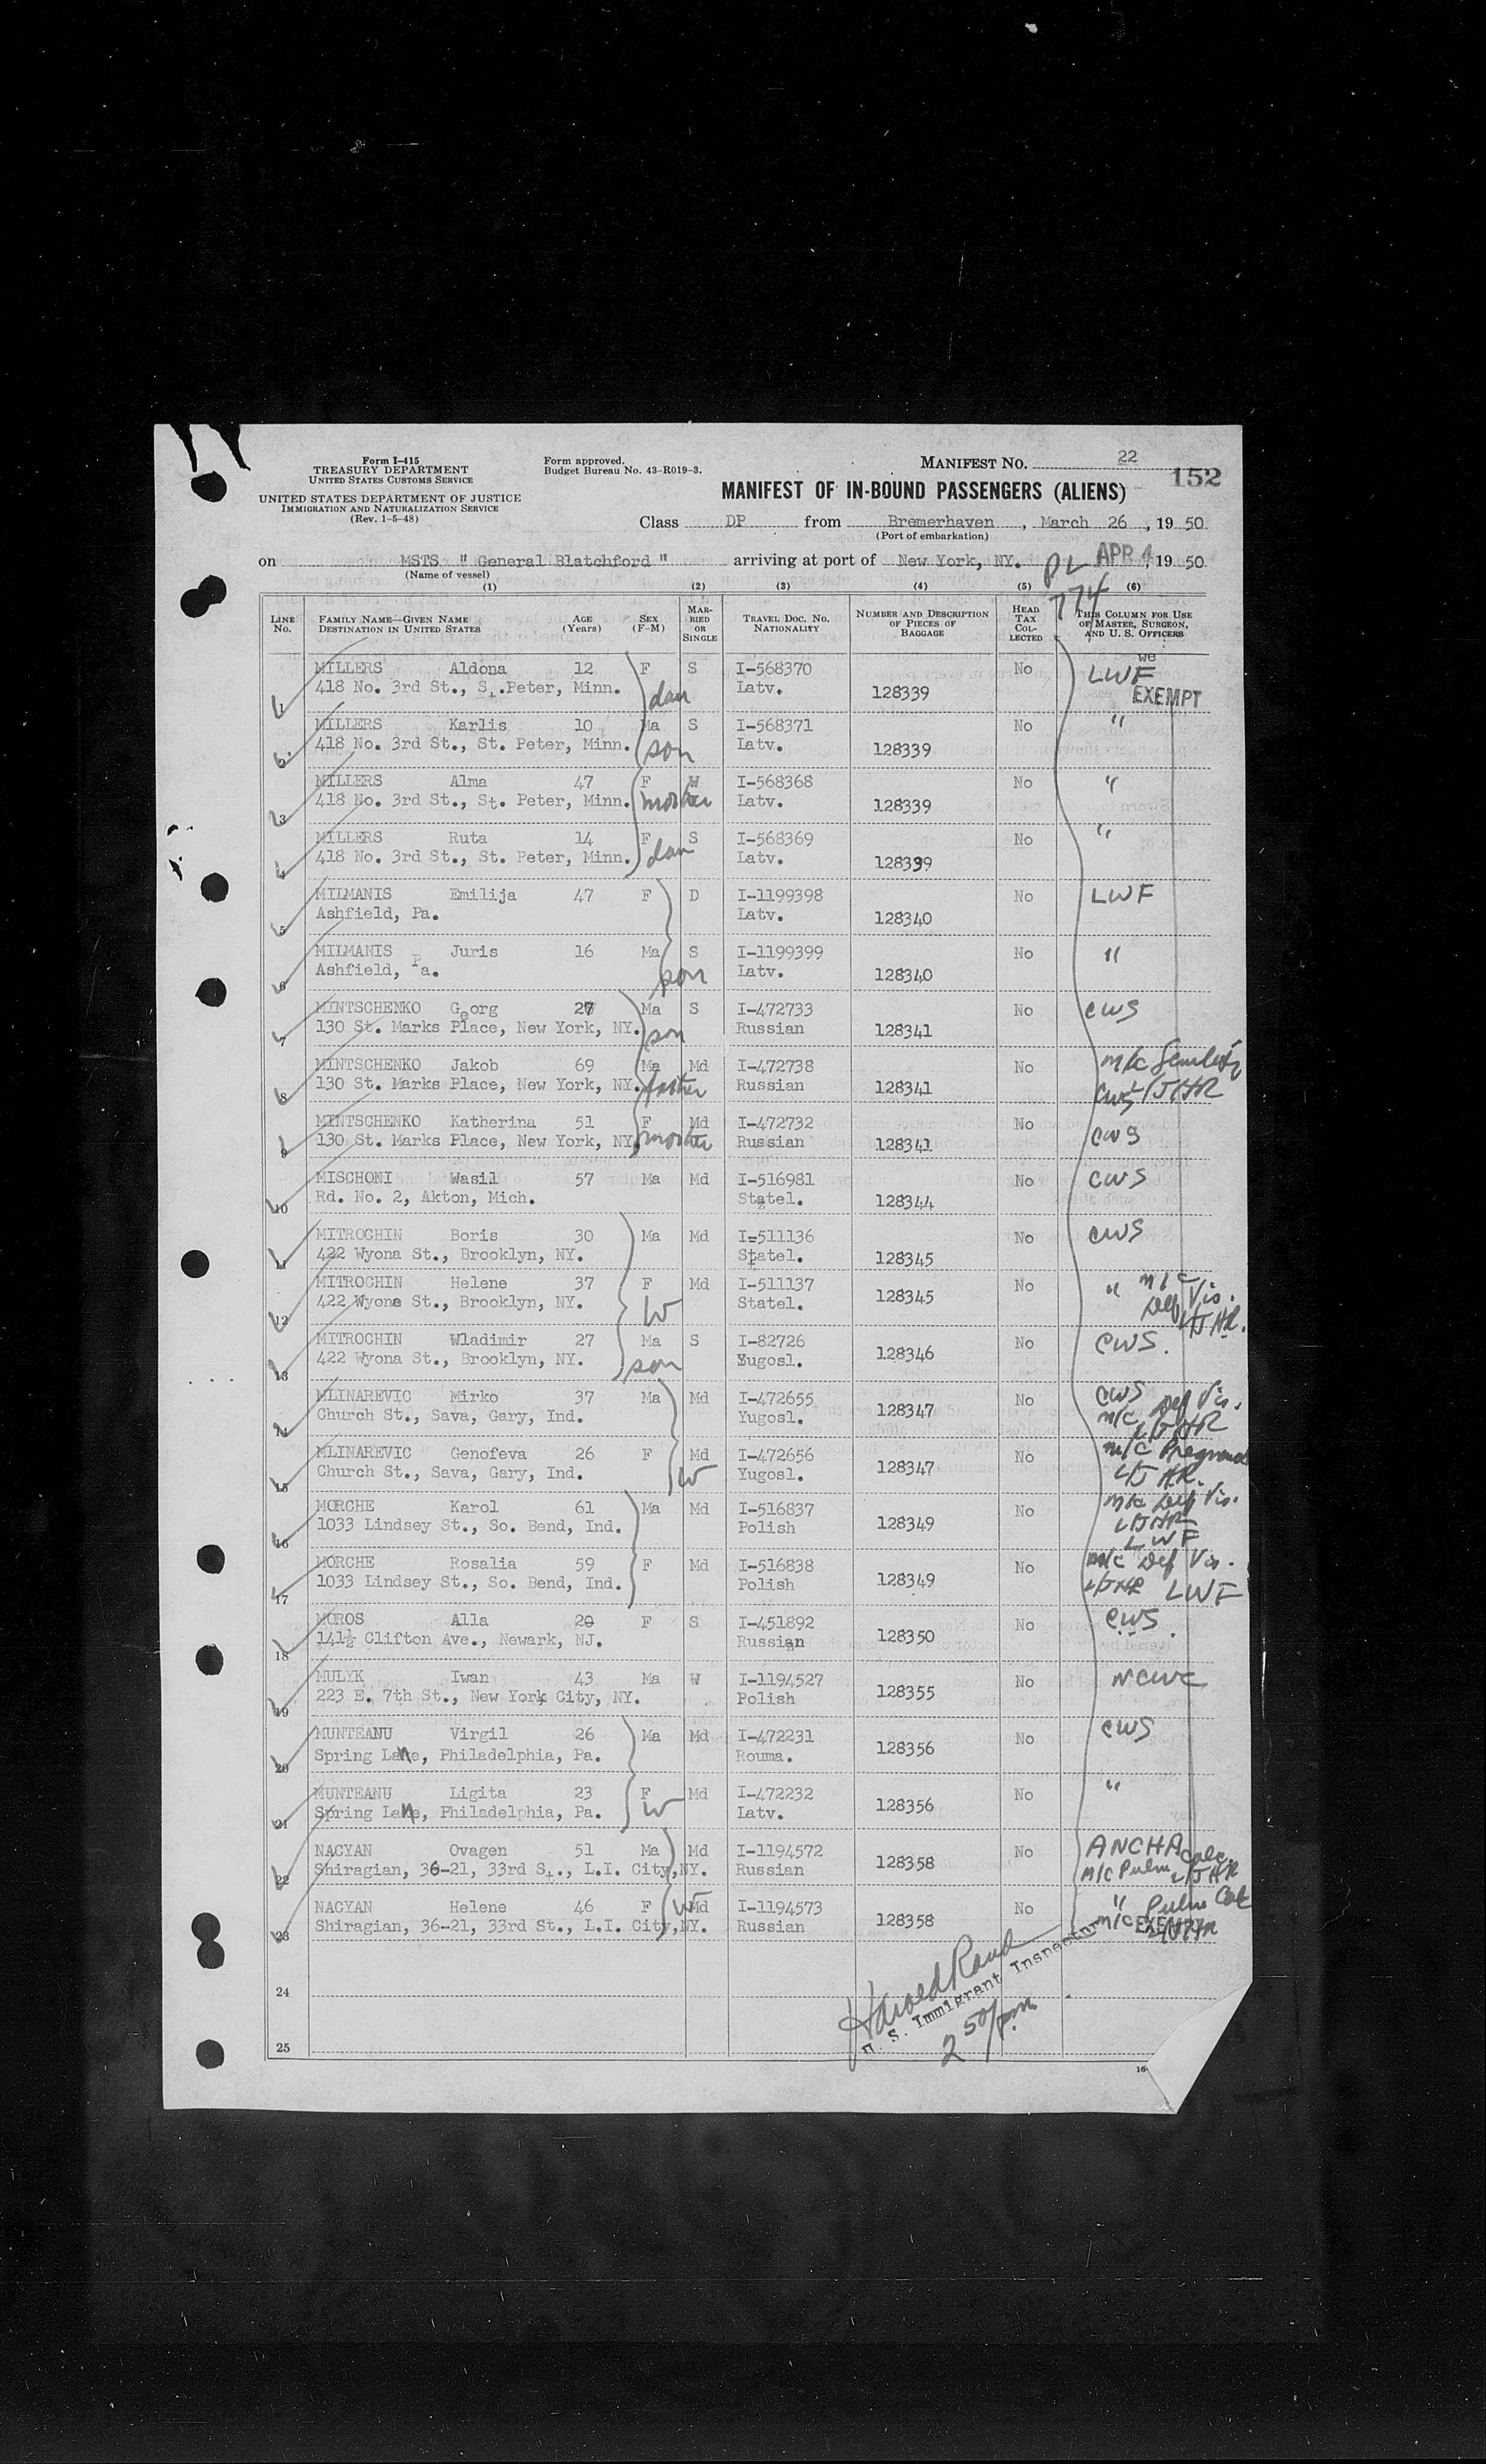 Form I-415
TREASURY DEPARTMENT
UNITED STATES CUSTOMS SERVICE
UNITED STATES DEPARTMENT OF JUSTICE
IMMIGRATION AND NATURALIZATION SERVICE
(Rev. 1-5-48)
Form approved.
Budget Bureau No. 43-R019-3.
MANIFEST NO. 22
152
MANIFEST OF IN-BOUND PASSENGERS (ALIENS)
Class DP from Bremerhaven, March 26, 19 50
(Port of embarkation)
on MSTS " General Blatchford " arriving at port of New York, NY. APR 4, 19 50
(Name of vessel)
PL 774
(1) (2) (3) (4) (5) (6)
LINE No. FAMILY NAME—GIVEN NAME DESTINATION IN UNITED STATES AGE (Years) SEX (F-M) MARRIED OR SINGLE TRAVEL DOC. NO. NATIONALITY NUMBER AND DESCRIPTION OF PIECES OF BAGGAGE HEAD TAX COLLECTED THIS COLUMN FOR USE OF MASTER, SURGEON, AND U. S. OFFICERS
1 MILLERS Aldona 12 F S I-568370 No LWF
418 No. 3rd St., St.Peter, Minn. dau Latv. 128339 EXEMPT
2 MILLERS Karlis 10 Ma S I-568371 No "
418 No. 3rd St., St. Peter, Minn. son Latv. 128339
3 MILLERS Alma 47 F W I-568368 No "
418 No. 3rd St., St. Peter, Minn. mother Latv. 128339
4 MILLERS Ruta 14 F S I-568369 No "
418 No. 3rd St., St. Peter, Minn. dau Latv. 128399
5 MILMANIS Emilija 47 F D I-1199398 No LWF
Ashfield, Pa. Latv. 128340
6 MILMANIS Juris 16 Ma S I-1199399 No "
Ashfield, Pa. son Latv. 128340
7 MINTSCHENKO Georg 27 Ma S I-472733 No CWS
130 St. Marks Place, New York, NY. son Russian 128341
8 MINTSCHENKO Jakob 69 Ma Md I-472738 No m/c Senility
130 St. Marks Place, New York, NY. father Russian 128341 CWS L/JHR
9 MINTSCHENKO Katherina 51 F Md I-472732 No CWS
130 St. Marks Place, New York, NY. mother Russian 128341
10 MISCHONI Wasil 57 Ma Md I-516981 No CWS
Rd. No. 2, Akton, Mich. Statel. 128344
11 MITROCHIN Boris 30 Ma Md I-511136 No CWS
422 Wyona St., Brooklyn, NY. Statel. 128345
12 MITROCHIN Helene 37 F Md I-511137 No " m/c
422 Wyone St., Brooklyn, NY. W Statel. 128345 Def Vis. L/JHR.
13 MITROCHIN Wladimir 27 Ma S I-82726 No CWS.
422 Wyona St., Brooklyn, NY. son Yugosl. 128346
14 MLINAREVIC Mirko 37 Ma Md I-472655 No CWS
Church St., Sava, Gary, Ind. Yugosl. 128347 m/c Def Vis. L/JHR
15 MLINAREVIC Genofeva 26 F Md I-472656 No m/c Pregnant
Church St., Sava, Gary, Ind. W Yugosl. 128347 L/JHR.
16 MORCHE Karol 61 Ma Md I-516837 No m/c Def Vis.
1033 Lindsey St., So. Bend, Ind. Polish 128349 L/JHR LWF
17 MORCHE Rosalia 59 F Md I-516838 No m/c Def Vis.
1033 Lindsey St., So. Bend, Ind. Polish 128349 L/JHR LWF
18 MOROS Alla 20 F S I-451892 No CWS.
141½ Clifton Ave., Newark, NJ. Russian 128350
19 MULYK Iwan 43 Ma W I-1194527 No NCWC
223 E. 7th St., New York City, NY. Polish 128355
20 MUNTEANU Virgil 26 Ma Md I-472231 No CWS
Spring Lane, Philadelphia, Pa. Rouma. 128356
21 MUNTEANU Ligita 23 F Md I-472232 No "
Spring Lane, Philadelphia, Pa. W Latv. 128356
22 NACYAN Ovagen 51 Ma Md I-1194572 No ANCHA
Shiragian, 36-21, 33rd St., L.I. City,NY. Russian 128358 m/c Pulm Calc. L/JHR
23 NACYAN Helene 46 F W Md I-1194573 No " Pulm Calc
Shiragian, 36-21, 33rd St., L.I. City,NY. Russian 128358 m/c EXEMPT L/JHR
24
Harold Rand
U. S. Immigrant Inspector
2 50/pm
25
16-